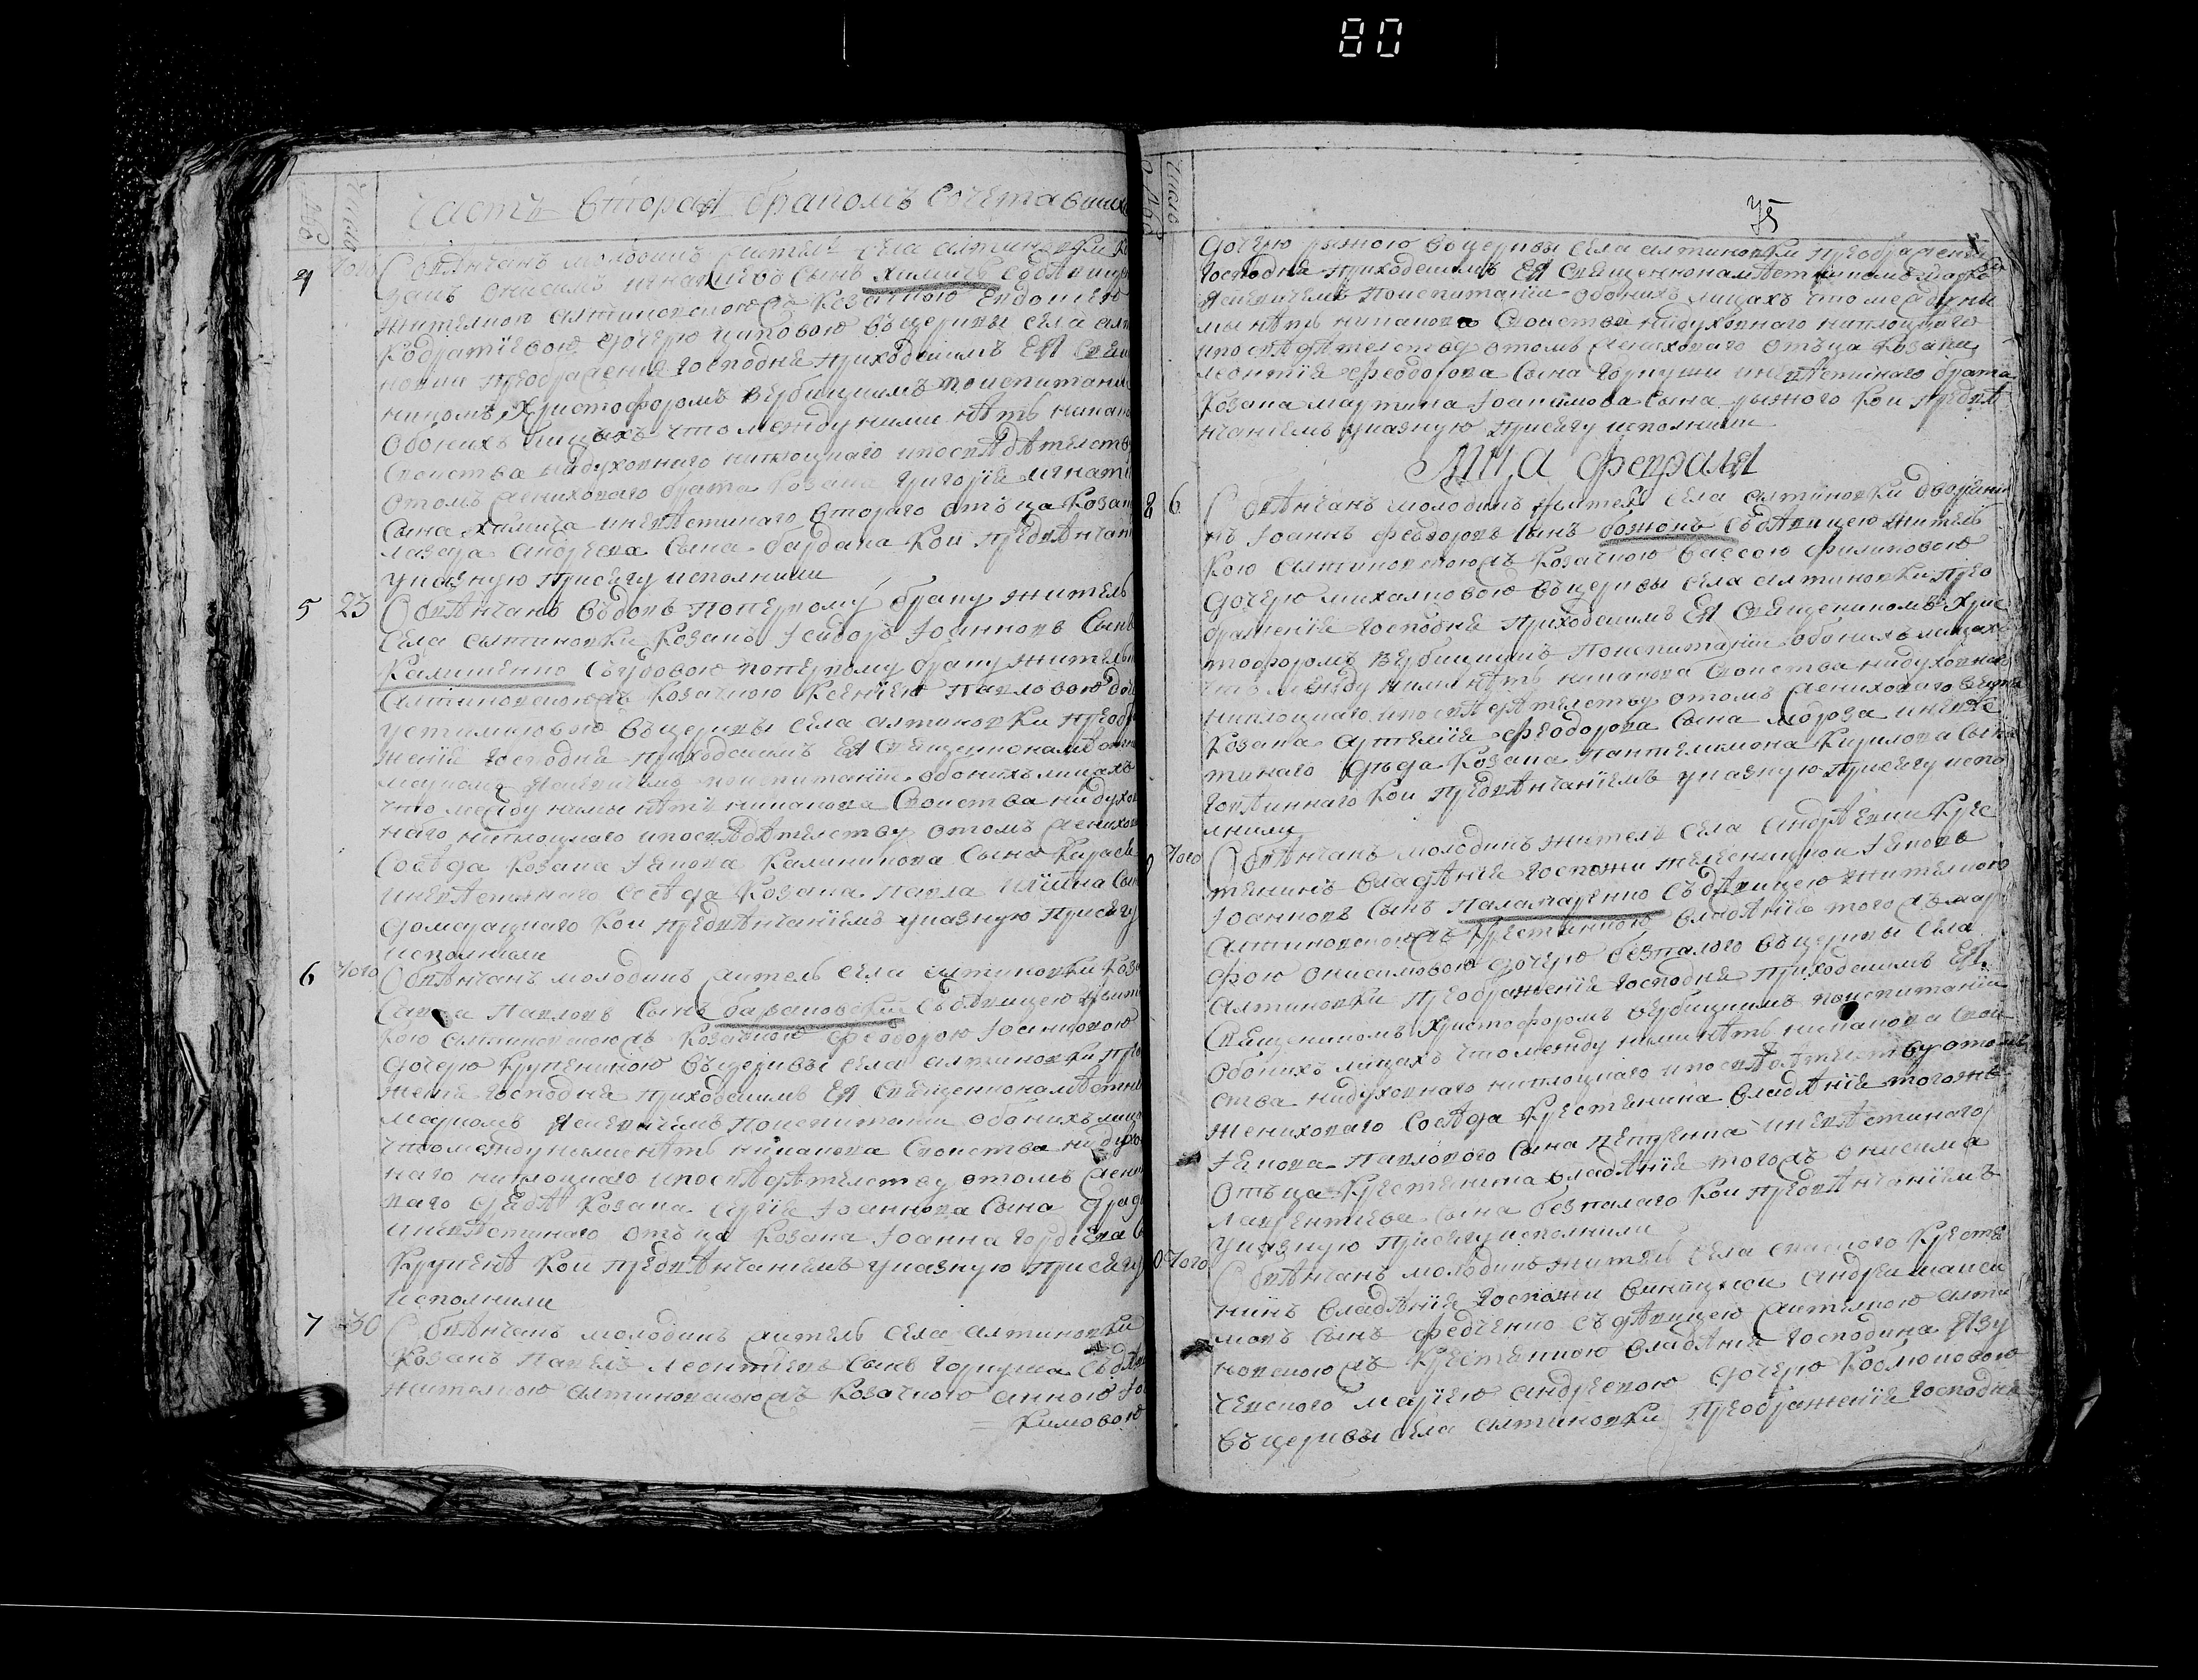 80
Часть вторая бракомъ сочетавшихъ
№
Число
4 того Обвѣнчанъ молодикъ житель села алтиновки ко
закъ онисимъ игнатіевъ сынъ химичъ съдѣвицею
жителкою алтиновскоюжъ козачкою Евдокіею
Кодратіевою дочерю цаповою въцеркви села алт
новки преображенія Господня приходскимъ Ея Священ
никомъ Христофоромъ вербицкимъ поиспитаніи
обоихъ лицахъ что между ними нѣтъ никако
Свойства нидуховнаго ниплоцкаго ипосвѣдѣтелству
отомъ жениховаго брата козака григорія игнаті
Сына химича иневѣстинаго втораго отъца козака
лазара андреева Сына бардака кои предвѣнчан
указную присягу исполнили
5 23 Обвѣнчанъ въдовъ поперъвому браку житель
Села алтиновки козакъ Ісидоръ Іоанновъ Сынъ
Калишенко Съудовою поперъвому браку жителк
алтиновскоюжъ козачкою ксеніею павловою доч
устимковою въцеркви села алтиновки преобра
женія господня приходскимъ Ея Священнонамѣстни
маркомъ поиспитаніи обоихъ лицахъ
что между ними нѣтъ никакова Свойства нидухов
наго ниплоцкаго ипосвѣдѣтелству отомъ женихов
Сосѣда козака Якова калиникова Сына
иневѣстинаго Сосѣда козака павла Иліина Сын
домарацкаго кои предвѣнчаніемъ указную присягу
исполнили
6 того Обвѣнчанъ молодикъ житель села алтиновки коза
Савва павловъ сынъ барановскій Съдѣвицею жител
кою алтиновскоюжъ козачкою феодорою Іоанновою
дочерю крупскиною въцеркви села алтиновки прео
женія господня приходскимъ Ея Священнонамѣстни
маркомъ поиспитаніи обоихъ лица
что между ними нѣтъ никакова Свойства ни духо
наго ниплоцкаго ипосвѣдѣтелству отомъ жених
ваго дѣда козака Сергія Іоаннова Сына
иневѣстинаго отъца козака Іоанна гордіева
кои предвѣнчаніемъ указную присягу
исполнили
7 30 Обвѣнчанъ молодикъ житель села алтиновки
козакъ павелъ леонтіевъ Сынъ горкуша Съдѣв
жителкою алтиновскоюжъ козачкою анною Іо
= кимовою
№
Число
75
дочерю рижою въцеркви села алтиновки преображенія
Господня приходскимъ Ея Священнонамѣстникомъ марко
поиспитаніи обоихъ лицахъ что между ни
мы нѣтъ никакова Свойства нидуховнаго ниплоцкаго
ипосвѣдѣтелству отомъ жениховаго отъца козака
леонтія феодорова Сына горкуши иневѣстинаго брата
козака мартина Іоакимова Сына рижого кои предвѣ
нчаніемъ указную присягу исполнили
Мца февраля
8 6 Обвѣнчанъ молодикъ житель села алтиновки дворяни
нъ Іоаннъ феодоровъ Сынъ божокъ Съдѣвицею жител
кою алтиновскоюжъ козачкою вассою филиповою
дочерю михалковою въцеркви села алтиновки прео
браженія Господня приходскимъ Ея Священикомъ Хрис
тофоромъ вербицкимъ поиспитаніи обоихъ лицахъ
что между ними нѣтъ никакова Свойства нидуховнаго
ниплоцкаго ипосвѣдѣтелству отомъ жениховаго
козака артемія феодорова Сына мороза иневѣс
тинаго дѣда козака пантилимона кирилова Сына
кои предвѣнчаніемъ указную присягу испо
лнили
9 того Обвѣнчанъ молодикъ житель села андрѣевки крес
тянинъ владѣнія госпожи Яковъ
Іоанновъ Сынъ паламаренко Съдѣвицею жителкою
алтиновскоюжъ крестянкою владѣнія тогожъ мар
фою онисимовою дочерю безпалого въцеркви села
алтиновки преображенія господня приходскимъ Ея
Священикомъ Христофоромъ вербицкимъ поиспитаніи
обоихъ лицахъ что между ними нѣтъ никакова Свой
ства нидуховнаго ниплоцкаго ипосвѣдѣтелству отомъ
жениховаго Сосѣда крестянина владѣнія тогожъ
Якова павлового Сына иневѣстинаго
отъца крестянина владѣнія тогожъ онисима
лаврентіева Сына безпалаго кои предвѣнчаніемъ
указную присягу исполнили
0 того Обвѣнчанъ молодикъ житель села спаского кресте
нинъ владѣнія госпожи андрей макси
мовъ Сынъ федченко Съдѣвицею жителкою алти
новскоюжъ крестянкою владѣнія господина Язу
чевского маріею андреевою дочерю коблюковою
въцеркви села алтиновки преображенія господня